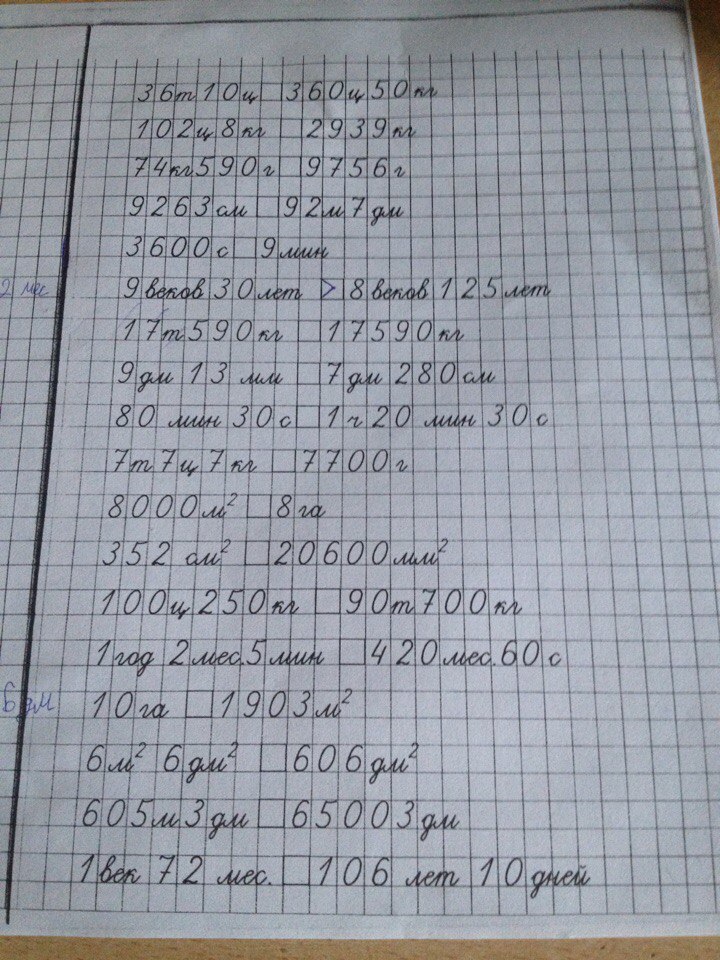 36т10ц □ 360ц50кг
102ц8кг □ 2939кг
74кг590г □ 9756г
9263см □ 92м7дм
3600с □ 9мин
2 мес
9веков30лет > 8веков125лет
17т590кг □ 17590кг
9дм 13 мм □ 7дм 280см
80 мин 30с □ 1ч20 мин 30с
7т7ц7кг □ 7700г
8000м² □ 8га
352 см² □ 20600мм²
100ц250кг □ 90т700кг
1год 2мес.5мин □ 420мес.60с
6 дм
10га □ 1903м²
6м² 6дм² □ 606дм²
605м3дм □ 65003дм
1век 72 мес. □ 106 лет 10дней